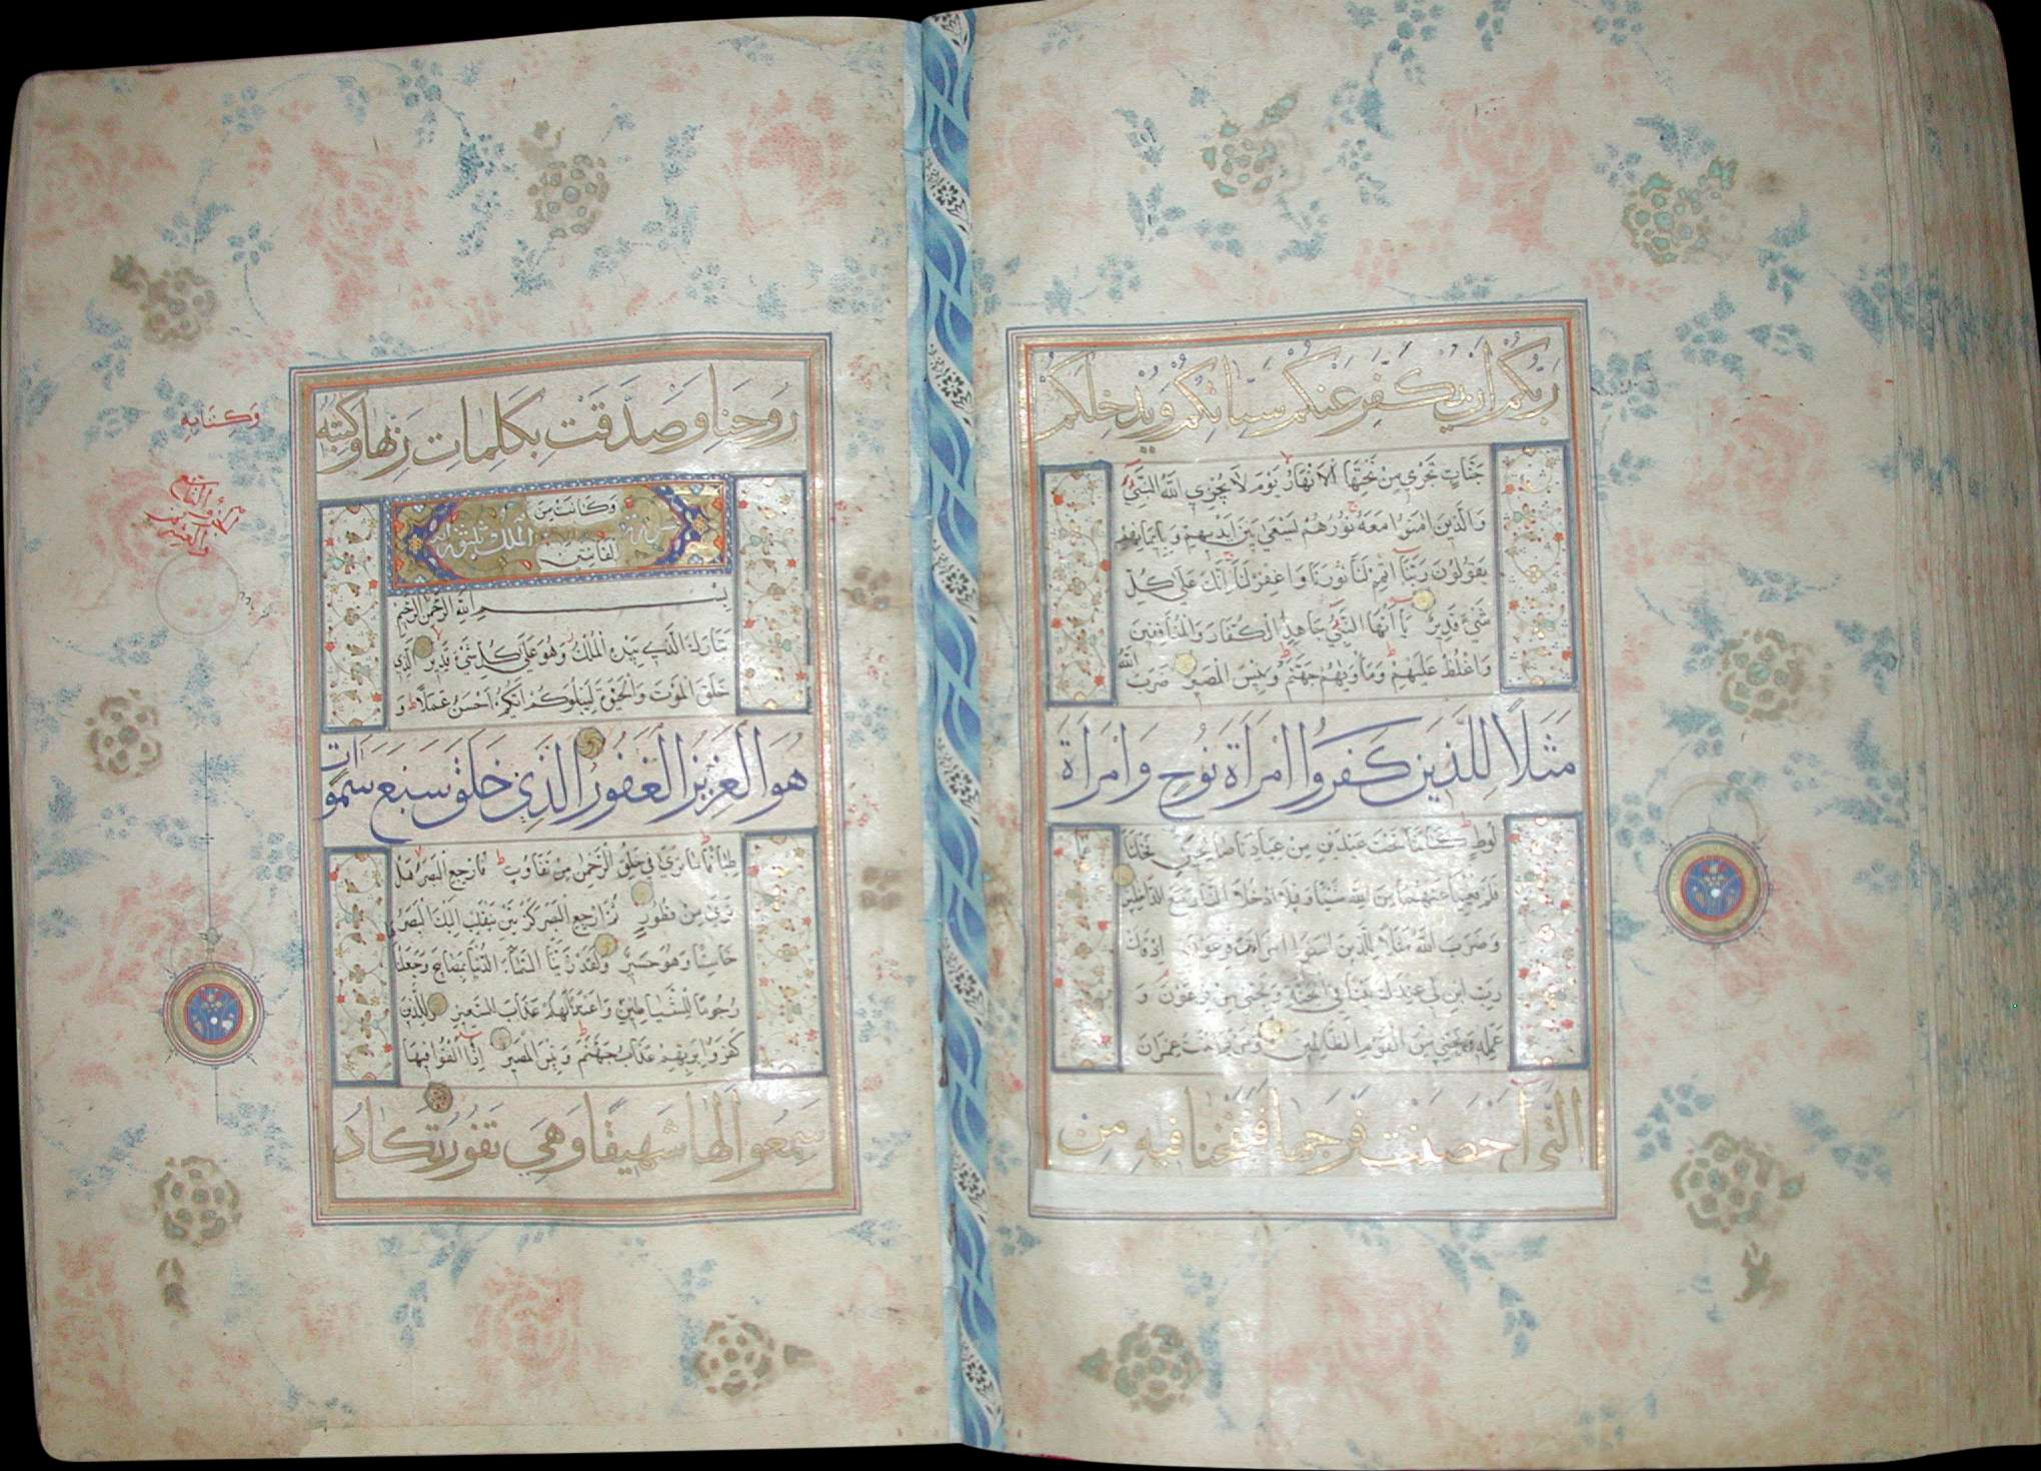 رَبُّكُمْ اَنْ يُكَفِّرَ عَنْكُمْ سَيِّاٰتِكُمْ وَيُدْخِلَكُمْ
جَنَّاتٍ تَجْرِي مِنْ تَحْتِهَا الْاَنْهَارُ يَوْمَ لَا يُخْزِي اللّٰهُ النَّبِيَّ
وَالَّذِينَ اٰمَنُوا مَعَهُ نُورُهُمْ يَسْعٰى بَيْنَ اَيْدِيهِمْ وَبِاَيْمَانِهِمْ
يَقُولُونَ رَبَّنَا اَتْمِمْ لَنَا نُورَنَا وَاغْفِرْ لَنَا اِنَّكَ عَلٰى كُلِّ
شَيْءٍ قَدِيرٌ يَا اَيُّهَا النَّبِيُّ جَاهِدِ الْكُفَّارَ وَالْمُنَافِقِينَ
وَاغْلُظْ عَلَيْهِمْ وَمَأْوٰيهُمْ جَهَنَّمُ وَبِئْسَ الْمَصِيرُ ضَرَبَ اللّٰهُ
مَثَلًا لِلَّذِينَ كَفَرُوا امْرَاَةَ نُوحٍ وَامْرَاَةَ
لُوطٍ كَانَتَا تَحْتَ عَبْدَيْنِ مِنْ عِبَادِنَا صَالِحَيْنِ فَخَانَتَا هُمَا
فَلَمْ يُغْنِيَا عَنْهُمَا مِنَ اللّٰهِ شَيْئًا وَقِيلَ ادْخُلَا النَّارَ مَعَ الدَّاخِلِينَ
وَضَرَبَ اللّٰهُ مَثَلًا لِلَّذِينَ اٰمَنُوا امْرَاَتَ فِرْعَوْنَ اِذْ قَالَتْ
رَبِّ ابْنِ لِي عِنْدَكَ بَيْتًا فِي الْجَنَّةِ وَنَجِّنِي مِنْ فِرْعَوْنَ وَ
عَمَلِهِ وَنَجِّنِي مِنَ الْقَوْمِ الظَّالِمِينَ وَمَرْيَمَ ابْنَتَ عِمْرَانَ
الَّتِي اَحْصَنَتْ فَرْجَهَا فَنَفَخْنَا فِيهِ مِنْ
رُوحِنَا وَصَدَّقَتْ بِكَلِمَاتِ رَبِّهَا وَكُتُبِهِ
وَكِتَابِهِ
وَكَانَتْ مِنَ
الْقَانِتِينَ
سورة الملك ثلثون آية
بِسْمِ اللّٰهِ الرَّحْمٰنِ الرَّحِيمِ
تَبَارَكَ الَّذِي بِيَدِهِ الْمُلْكُ وَهُوَ عَلٰى كُلِّ شَيْءٍ قَدِيرٌ الَّذِي
خَلَقَ الْمَوْتَ وَالْحَيٰوةَ لِيَبْلُوَكُمْ اَيُّكُمْ اَحْسَنُ عَمَلًا وَ
هُوَ الْعَزِيزُ الْغَفُورُ الَّذِي خَلَقَ سَبْعَ سَمٰوَاتٍ
طِبَاقًا مَا تَرٰى فِي خَلْقِ الرَّحْمٰنِ مِنْ تَفَاوُتٍ فَارْجِعِ الْبَصَرَ هَلْ
تَرٰى مِنْ فُطُورٍ ثُمَّ ارْجِعِ الْبَصَرَ كَرَّتَيْنِ يَنْقَلِبْ اِلَيْكَ الْبَصَرُ
خَاسِئًا وَهُوَ حَسِيرٌ وَلَقَدْ زَيَّنَّا السَّمَاءَ الدُّنْيَا بِمَصَابِيحَ وَجَعَلْنَاهَا
رُجُومًا لِلشَّيَاطِينِ وَاَعْتَدْنَا لَهُمْ عَذَابَ السَّعِيرِ وَلِلَّذِينَ
كَفَرُوا بِرَبِّهِمْ عَذَابُ جَهَنَّمَ وَبِئْسَ الْمَصِيرُ اِذَا اُلْقُوا فِيهَا
سَمِعُوا لَهَا شَهِيقًا وَهِيَ تَفُورُ تَكَادُ